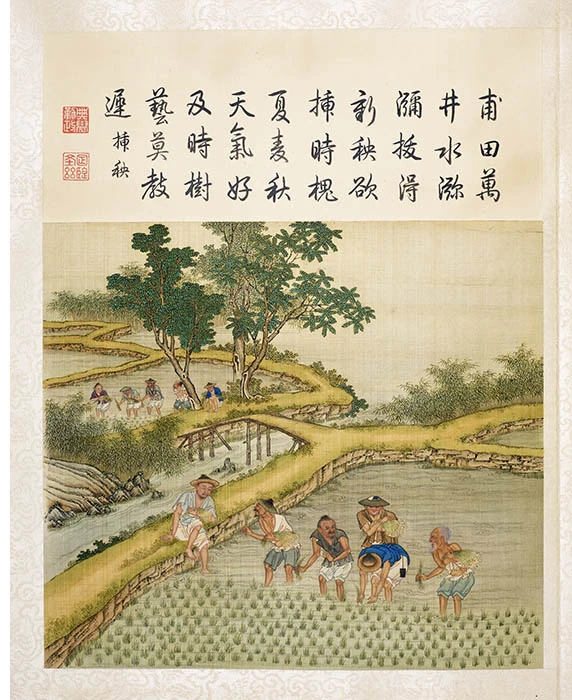 甫田萬
井水㳽
瀰拔得
新秧欲
挿時槐
夏麦秋
天氣好
及時樹
藝莫教
遲
挿秧